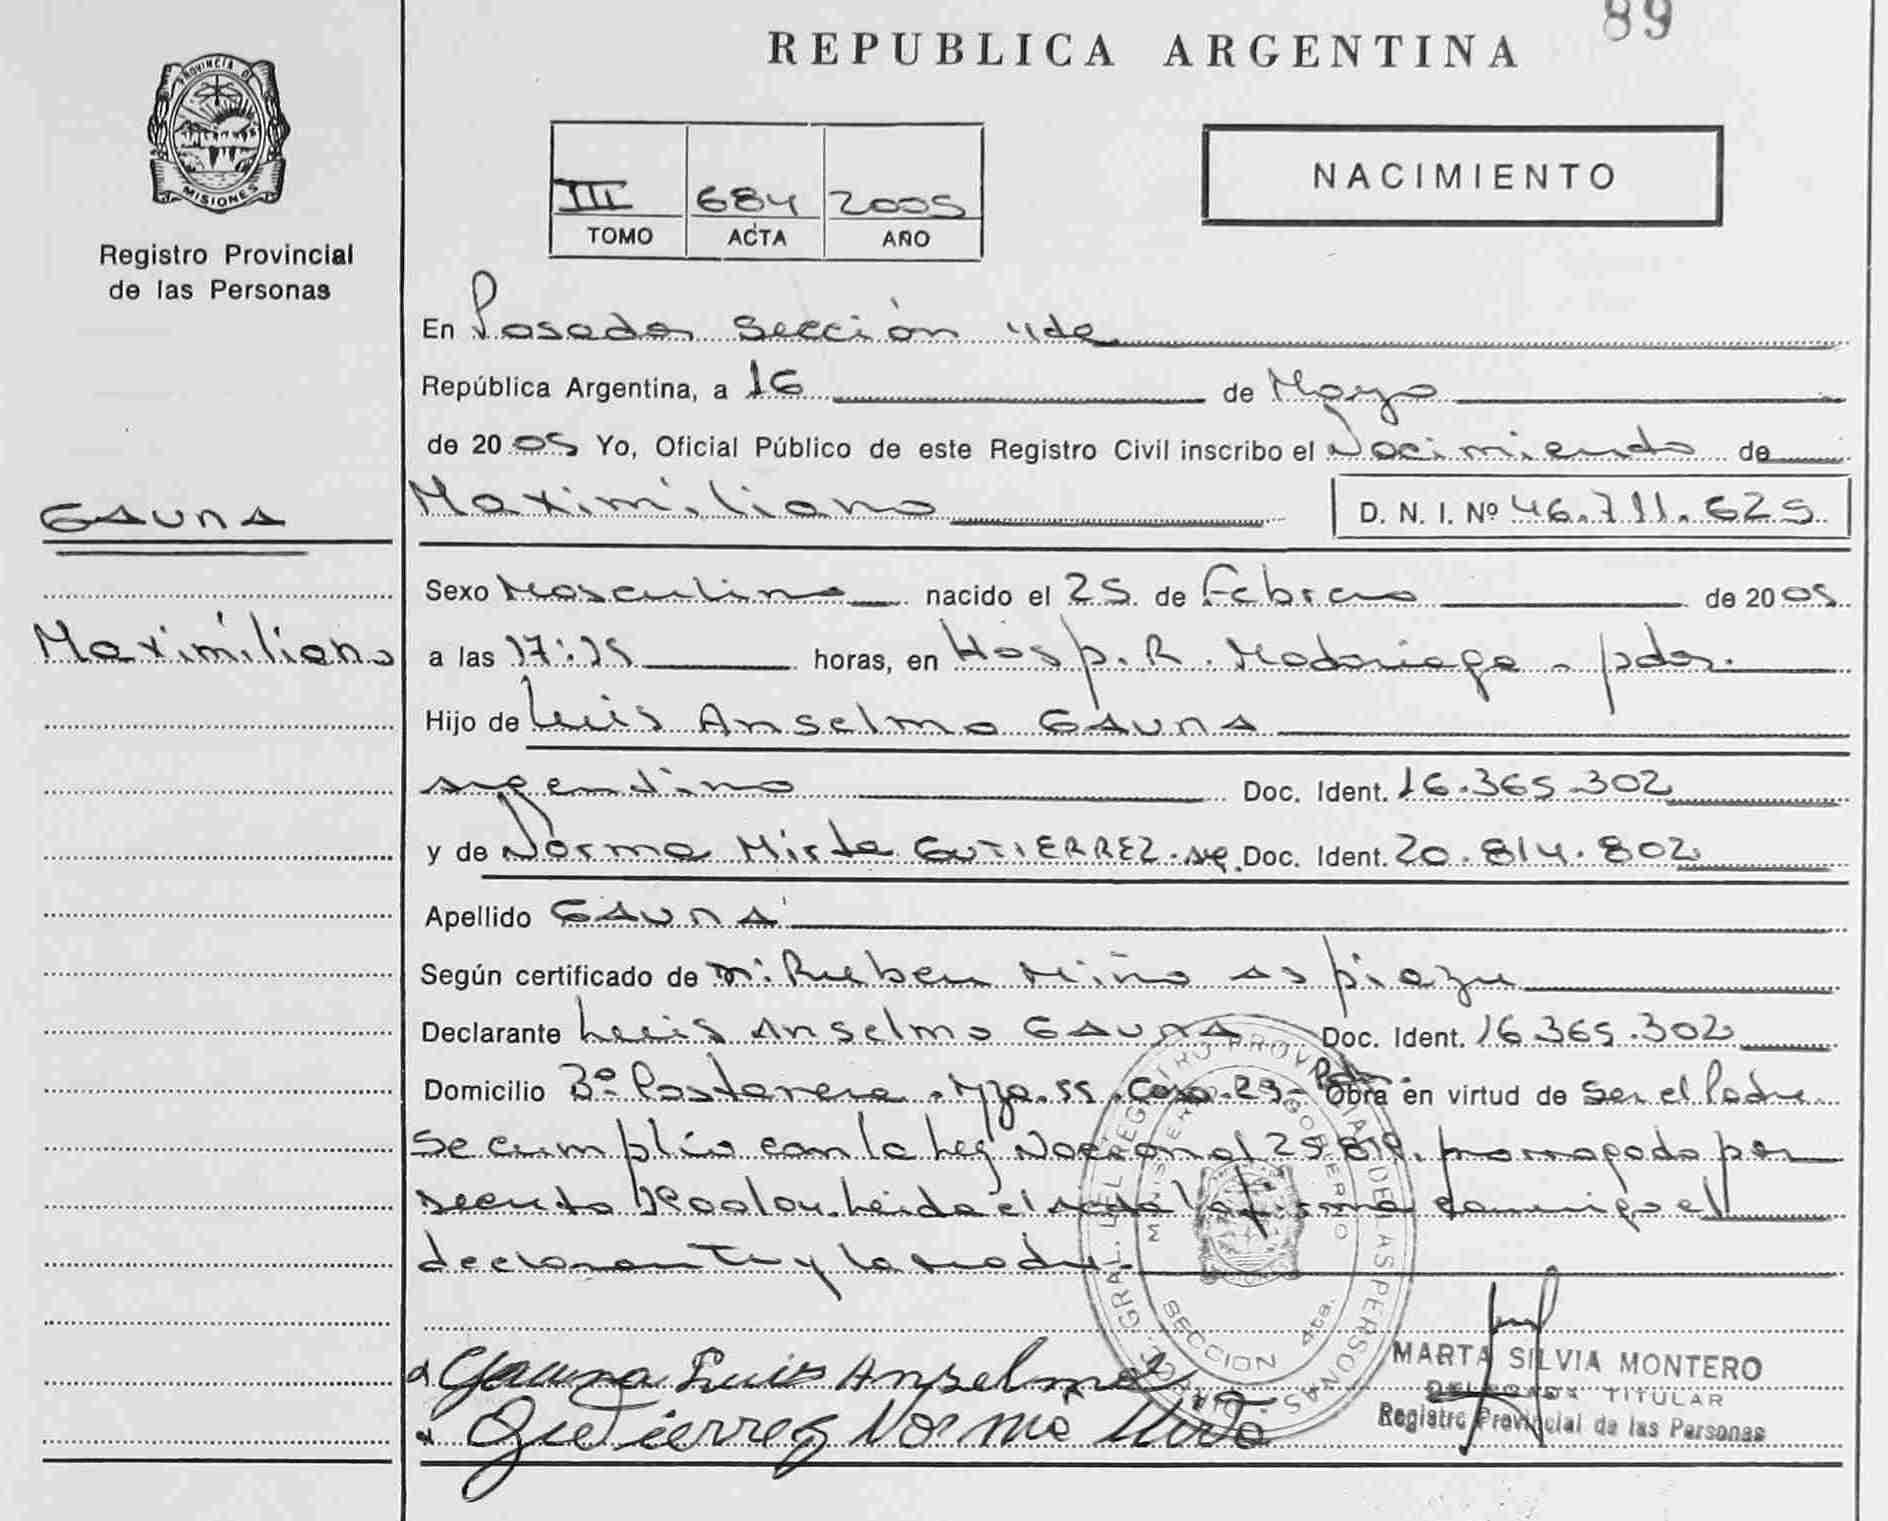 89
REPUBLICA ARGENTINA
PROVINCIA DE
MISIONES
Registro Provincial
de las Personas
NACIMIENTO
III 684 2005
TOMO ACTA AÑO
En Posadas Sección 4ta
República Argentina, a 16 de Mayo
de 2005 Yo, Oficial Público de este Registro Civil inscribo el Nacimiento de
GAUNA
Maximiliano D. N. I. Nº 46.711.625
Sexo Masculino nacido el 25 de Febrero de 2005
Maximiliano
a las 17:15 horas, en Hosp. R. Madariaga - pdas.
Hijo de Luis Anselmo GAUNA
argentino Doc. Ident. 16.365.302
y de Norma Mirta GUTIERREZ. arg. Doc. Ident. 20.814.802
Apellido GAUNA
Según certificado de Ruben Miño Aspiazu
Declarante Luis Anselmo GAUNA Doc. Ident. 16.365.302
Domicilio Bº Costanera. Mza. 55. Casa. 23- Obra en virtud de ser el Padre
Se cumplió con la ley Nacional 25.819. prorrogada por
decreto Leida el acta la firma conmigo el
declarante y la madre.
Gauna Luis Anselmo
Gutierrez Norma Mirta
DIREC. GRAL. DEL REGISTRO PROVINCIAL DE LAS PERSONAS
MINISTERIO GOBIERNO
SECCION 4ta.
MARTA SILVIA MONTERO
DELEGADA TITULAR
Registro Provincial de las Personas